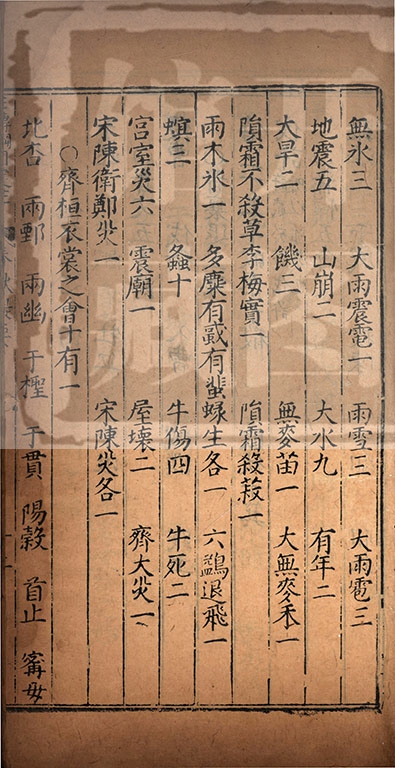 無氷三　大雨震電一　雨雪三　大雨雹三
地震五　山崩二　大水九　有年二
大旱二　饑三　無麥苗一　大無麥禾一
隕霜不殺草李梅實一　隕霜殺菽一
雨木氷一　多麋有蜮有蜚蝝生各一　六鷁退飛一
螟三　螽十　牛傷四　牛死二
宫室災六　震廟一　屋壊二　齊大災一
宋陳衛鄭災一　宋陳災各一
○齊桓衣裳之會十有一
北杏　兩鄄　兩幽　于檉　于貫　陽榖　首止　甯毋